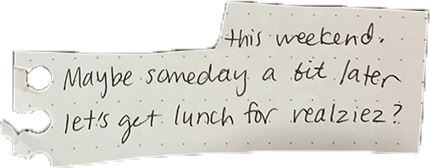 this weekend.
Maybe someday a bit later
let's get lunch for realziez?